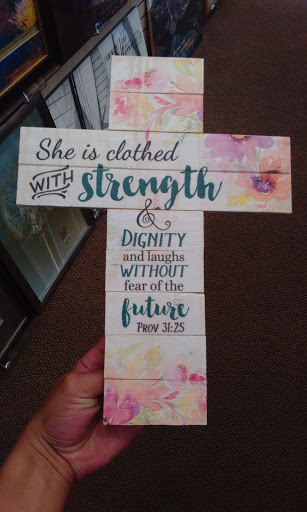 She is clothed
WITH strength
&
DIGNITY
and laughs
WITHOUT
fear of the
future
PROV 31:25